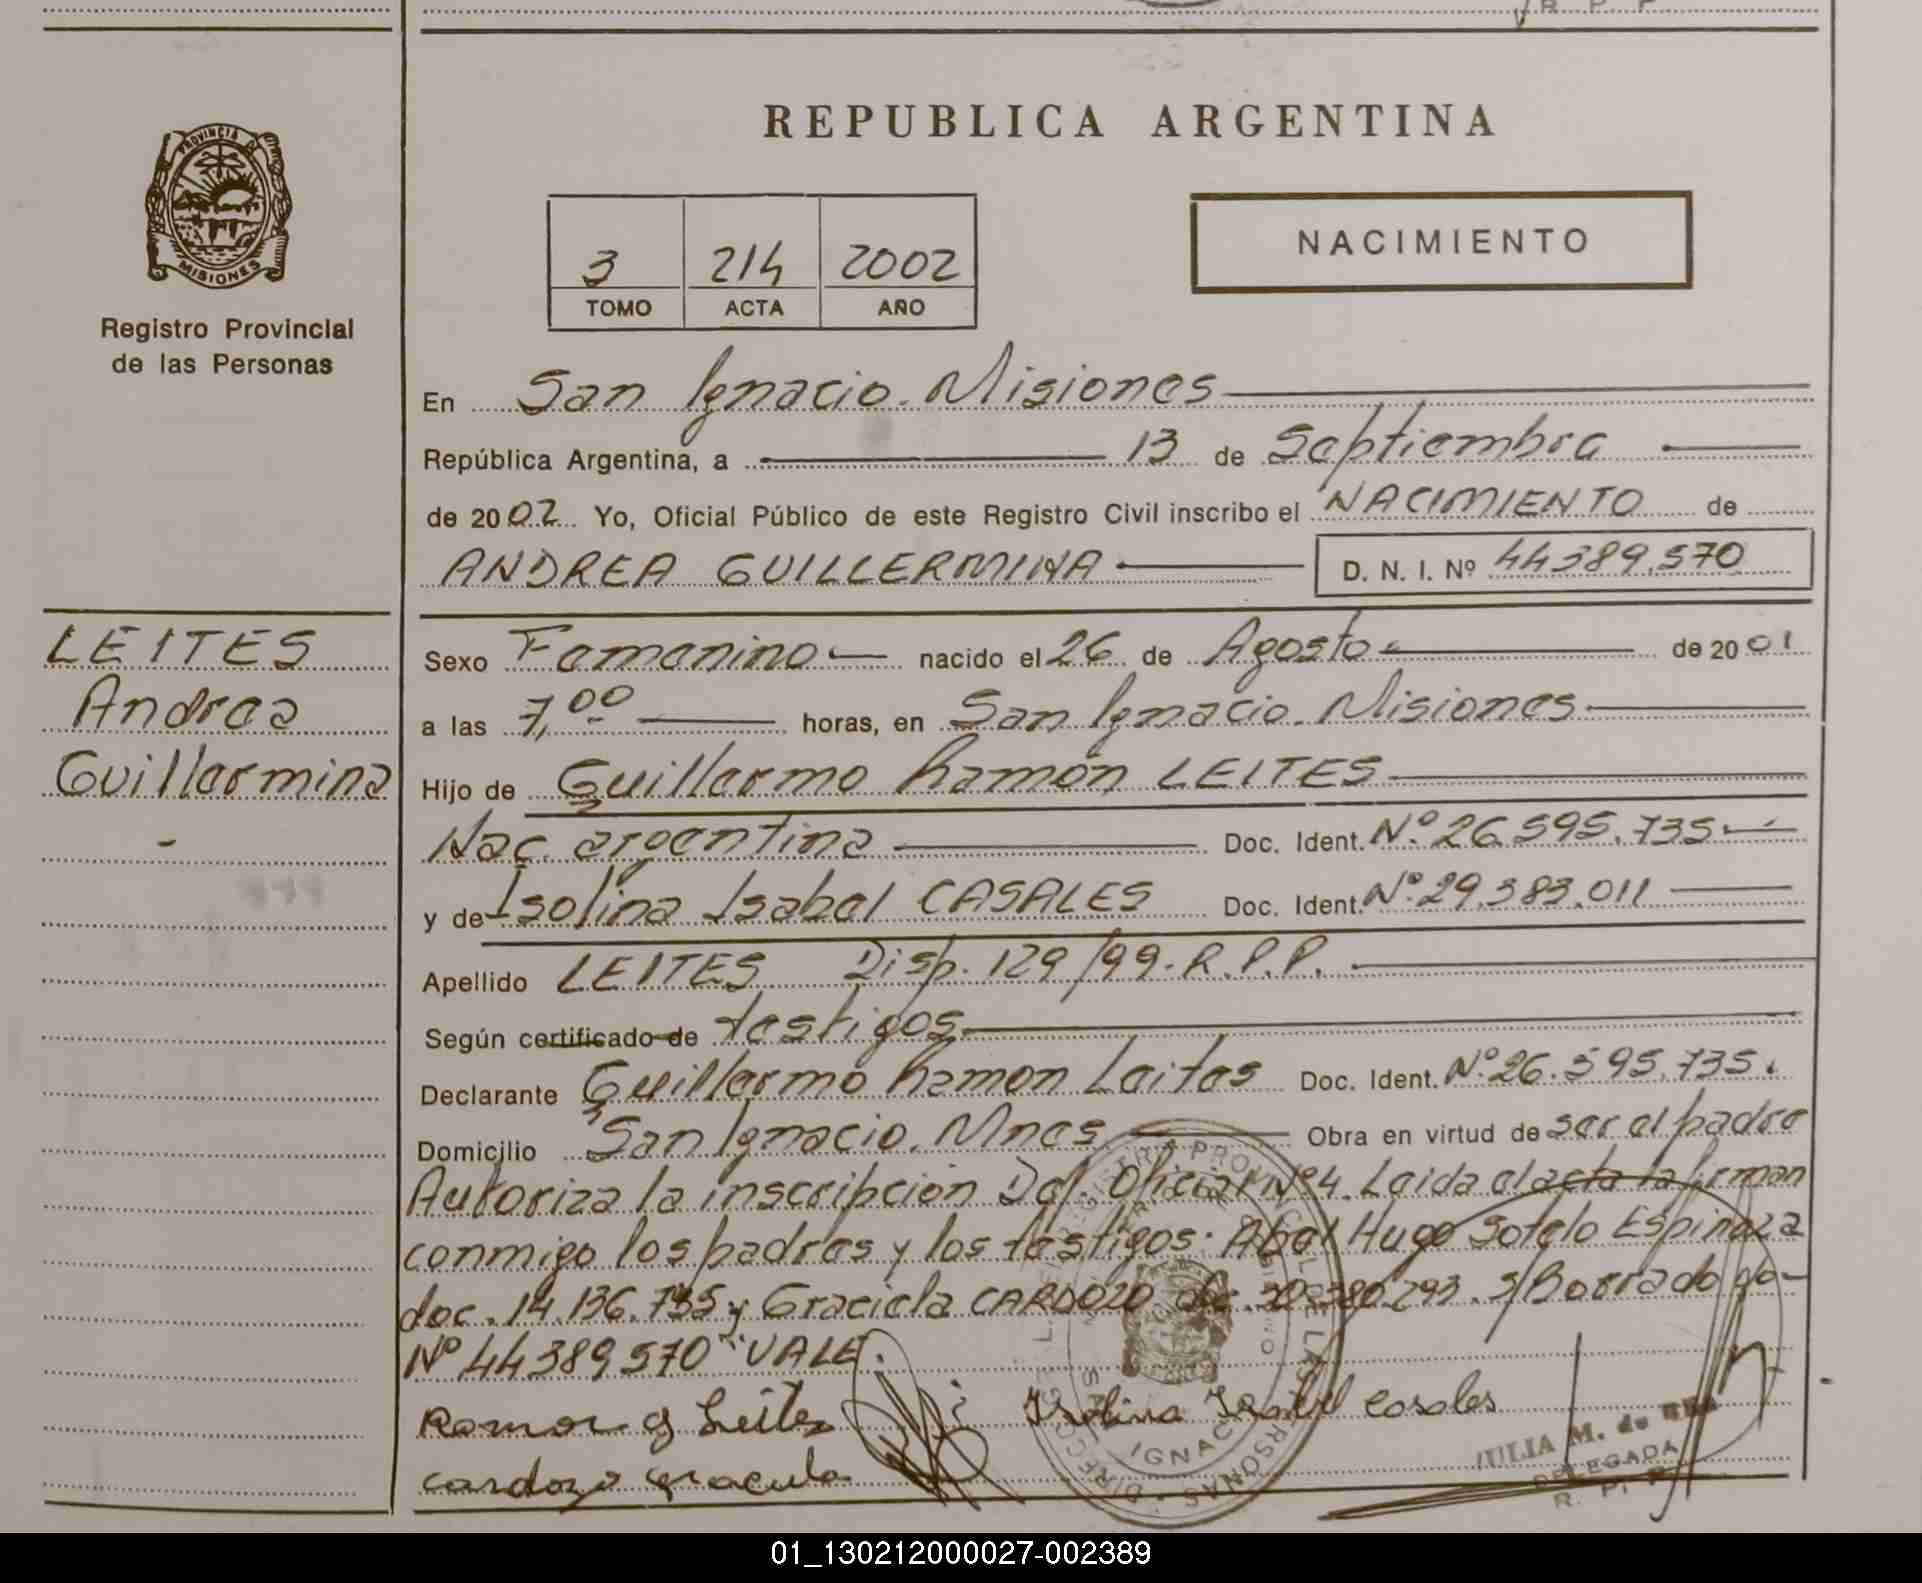 REPUBLICA ARGENTINA
PROVINCIA DE
MISIONES
Registro Provincial
de las Personas
3 214 2002
TOMO ACTA AÑO
NACIMIENTO
En San Ignacio. Misiones
República Argentina, a 13 de Septiembre
de 2002 Yo, Oficial Público de este Registro Civil inscribo el NACIMIENTO de
ANDREA GUILLERMINA D. N. I. Nº 44389.570
LEITES
Andrea
Guillermina
Sexo Femenino nacido el 26 de Agosto de 2001
a las 7,00 horas, en San Ignacio. Misiones
Hijo de Guillermo Ramón LEITES
Nac. argentina Doc. Ident. Nº 26.595.735
y de Isolina Isabel CASALES Doc. Ident. Nº 29.383.011
Apellido LEITES Disp. 129/99. R.P.P.
Según certificado de testigos
Declarante Guillermo Ramon Leites Doc. Ident. Nº 26.595.735.
Domicilio San Ignacio. Mnes Obra en virtud de ser el padre
Autoriza la inscripción Del. Oficial Nº 4. Leida el acta la firman
conmigo los padres y los testigos. Abel Hugo Sotelo Espinoza
doc. 14.136.735 y Graciela CARDOZO dc. 20.380.293. S/Borrado
Nº 44389570 "VALE.
Ramon G Leites Isolina Isabel Casales
Cardozo Graciela
JULIA M. de
DELEGADA
R. P. P.
01_130212000027-002389